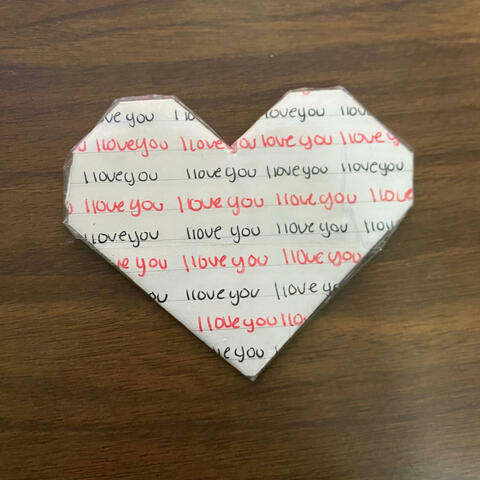 ve you I lo love you I lov
u I love you I love you love you I love y
I love you I love you I love you I love you
I love you I love you I love you I love
I love you I love you I love you I lo
e you I love you I love you
ou I love you I love y
I love you I lo
ve you I